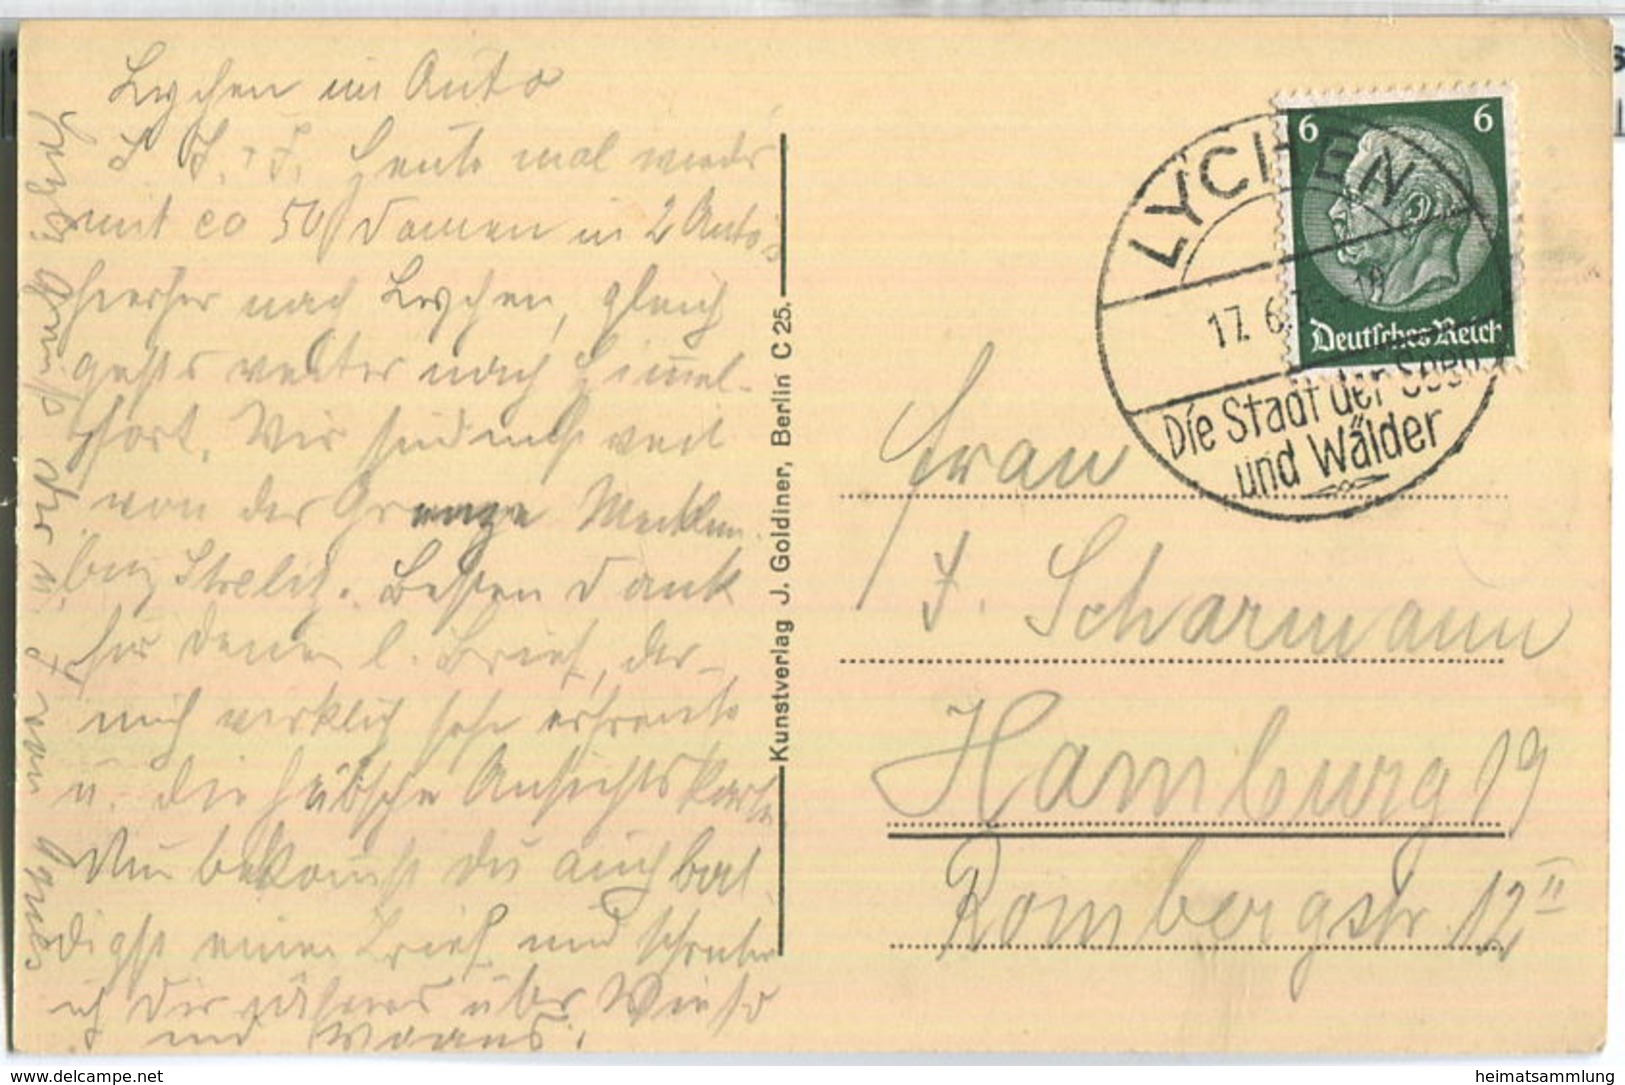 Lychen im Auto
L. H. + F. Heute mal wieder
mit ca 50 Damen in 2 Autos
hierher nach Lychen, gleich
gehts weiter nach Himmel-
pfort. Wir sind nicht weit
von der Grenze Mecklen-
burg Strelitz. Besten Dank
für Deinen l. Brief, der
mich wirklich sehr erfreute
u. die hübsche Ansichtskarte
Nun bekommst Du auch bal-
digst einen Brief und schreibe
ich Dir näheres über Wieso
und Woraus.
Herzl. Grüße Dir u. F. von Agnes
Kunstverlag J. Goldiner, Berlin C 25.
LYCHEN
17. 6.
Die Stadt der Seen
und Wälder
6 6
Deutsches Reich
Frau
F. Scharmann
Hamburg 19
Rombergstr. 12 II
www.delcampe.net
heimatsammlung